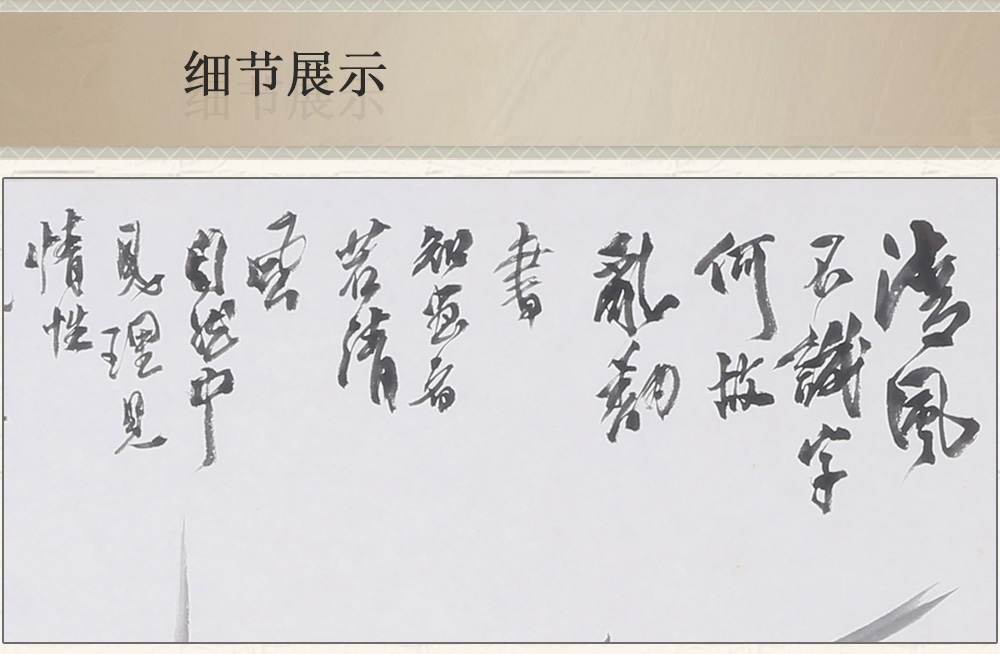 细节展示
清風
不識字
何故
亂翻
書
知者
若清
自然中
理見
情性